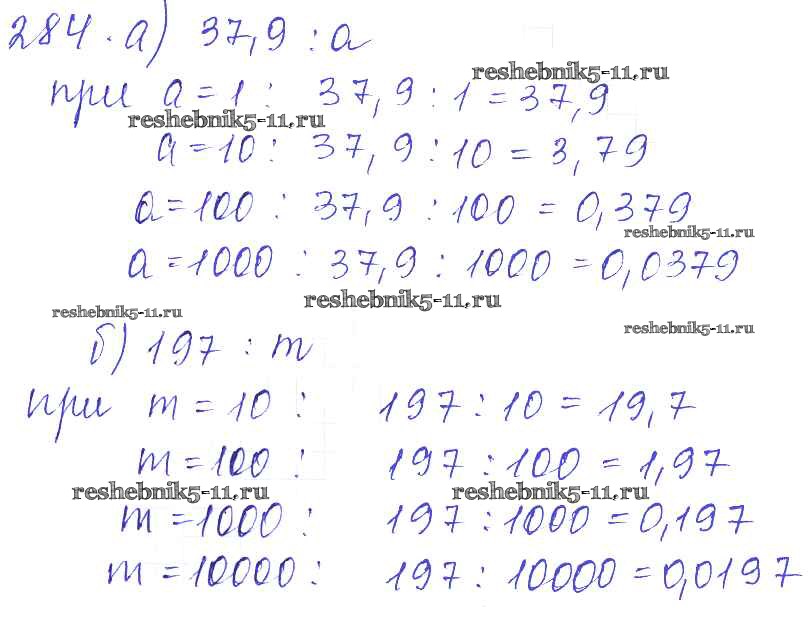 284. а) 37,9 : а
reshebnik5-11.ru
при а = 1 : 37,9 : 1 = 37,9
reshebnik5-11.ru
а = 10 : 37,9 : 10 = 3,79
а = 100 : 37,9 : 100 = 0,379
reshebnik5-11.ru
а = 1000 : 37,9 : 1000 = 0,0379
reshebnik5-11.ru
reshebnik5-11.ru
reshebnik5-11.ru
б) 197 : m
при m = 10 : 197 : 10 = 19,7
m = 100 : 197 : 100 = 1,97
reshebnik5-11.ru reshebnik5-11.ru
m = 1000 : 197 : 1000 = 0,197
m = 10000 : 197 : 10000 = 0,0197